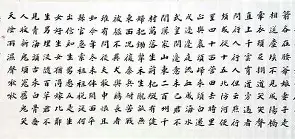 箭各在腰耶娘妻子走
相送塵埃不見咸陽橋
牽衣頓足攔道哭哭聲
直上干雲霄道旁過者
問行人行人但云點行
頻或從十五北防河便
至四十西營田去時里
正與裹頭歸來頭白還
戍邊邊庭流血成海水
武皇開邊意未已君不
聞漢家山東二百州千
村萬落生荊杞縱有健
婦把鋤犁禾生隴畝無
東西況復秦兵耐苦戰
被驅不異犬與雞長者
雖有問役夫敢申恨且
如今年冬未休關西卒
縣官急索租租稅從何
出信知生男惡反是生
女好生女猶得嫁比鄰
生男埋沒隨百草君不
見青海頭古來白骨無
人收新鬼煩冤舊鬼哭
天陰雨濕聲啾啾